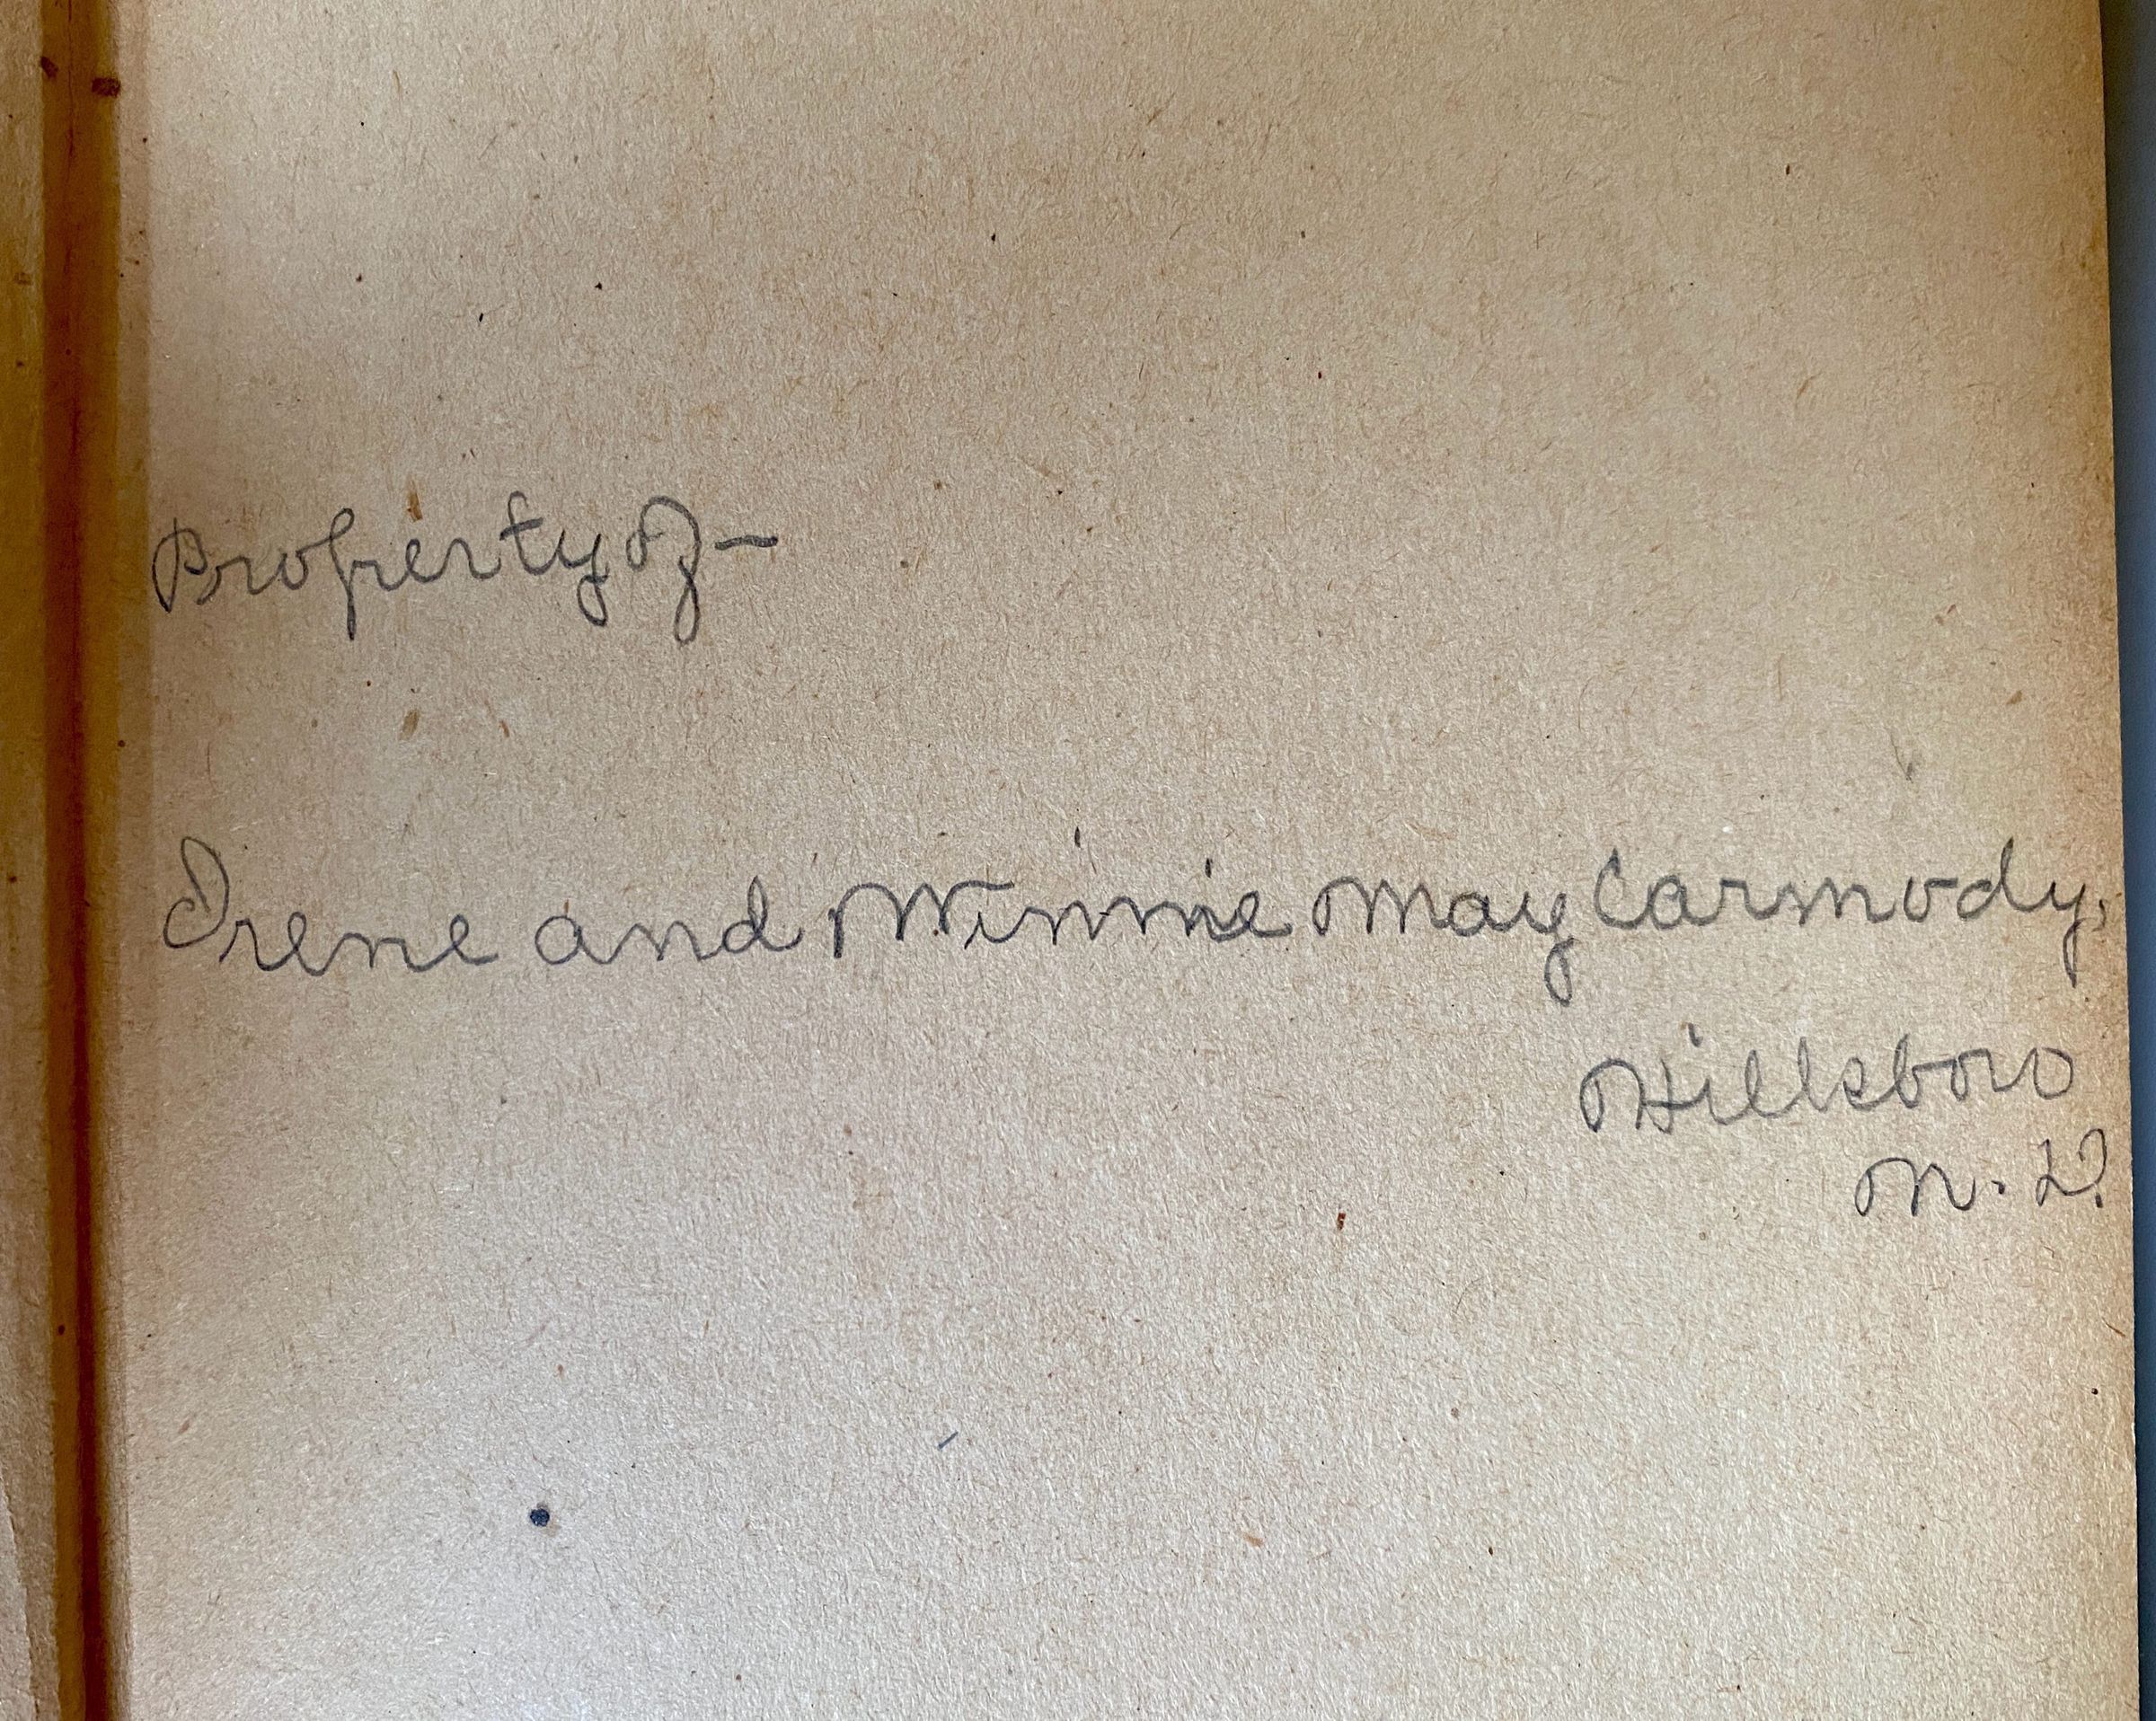 Property of –
Irene and Winnie May Carmody,
Hillsboro
N. D.